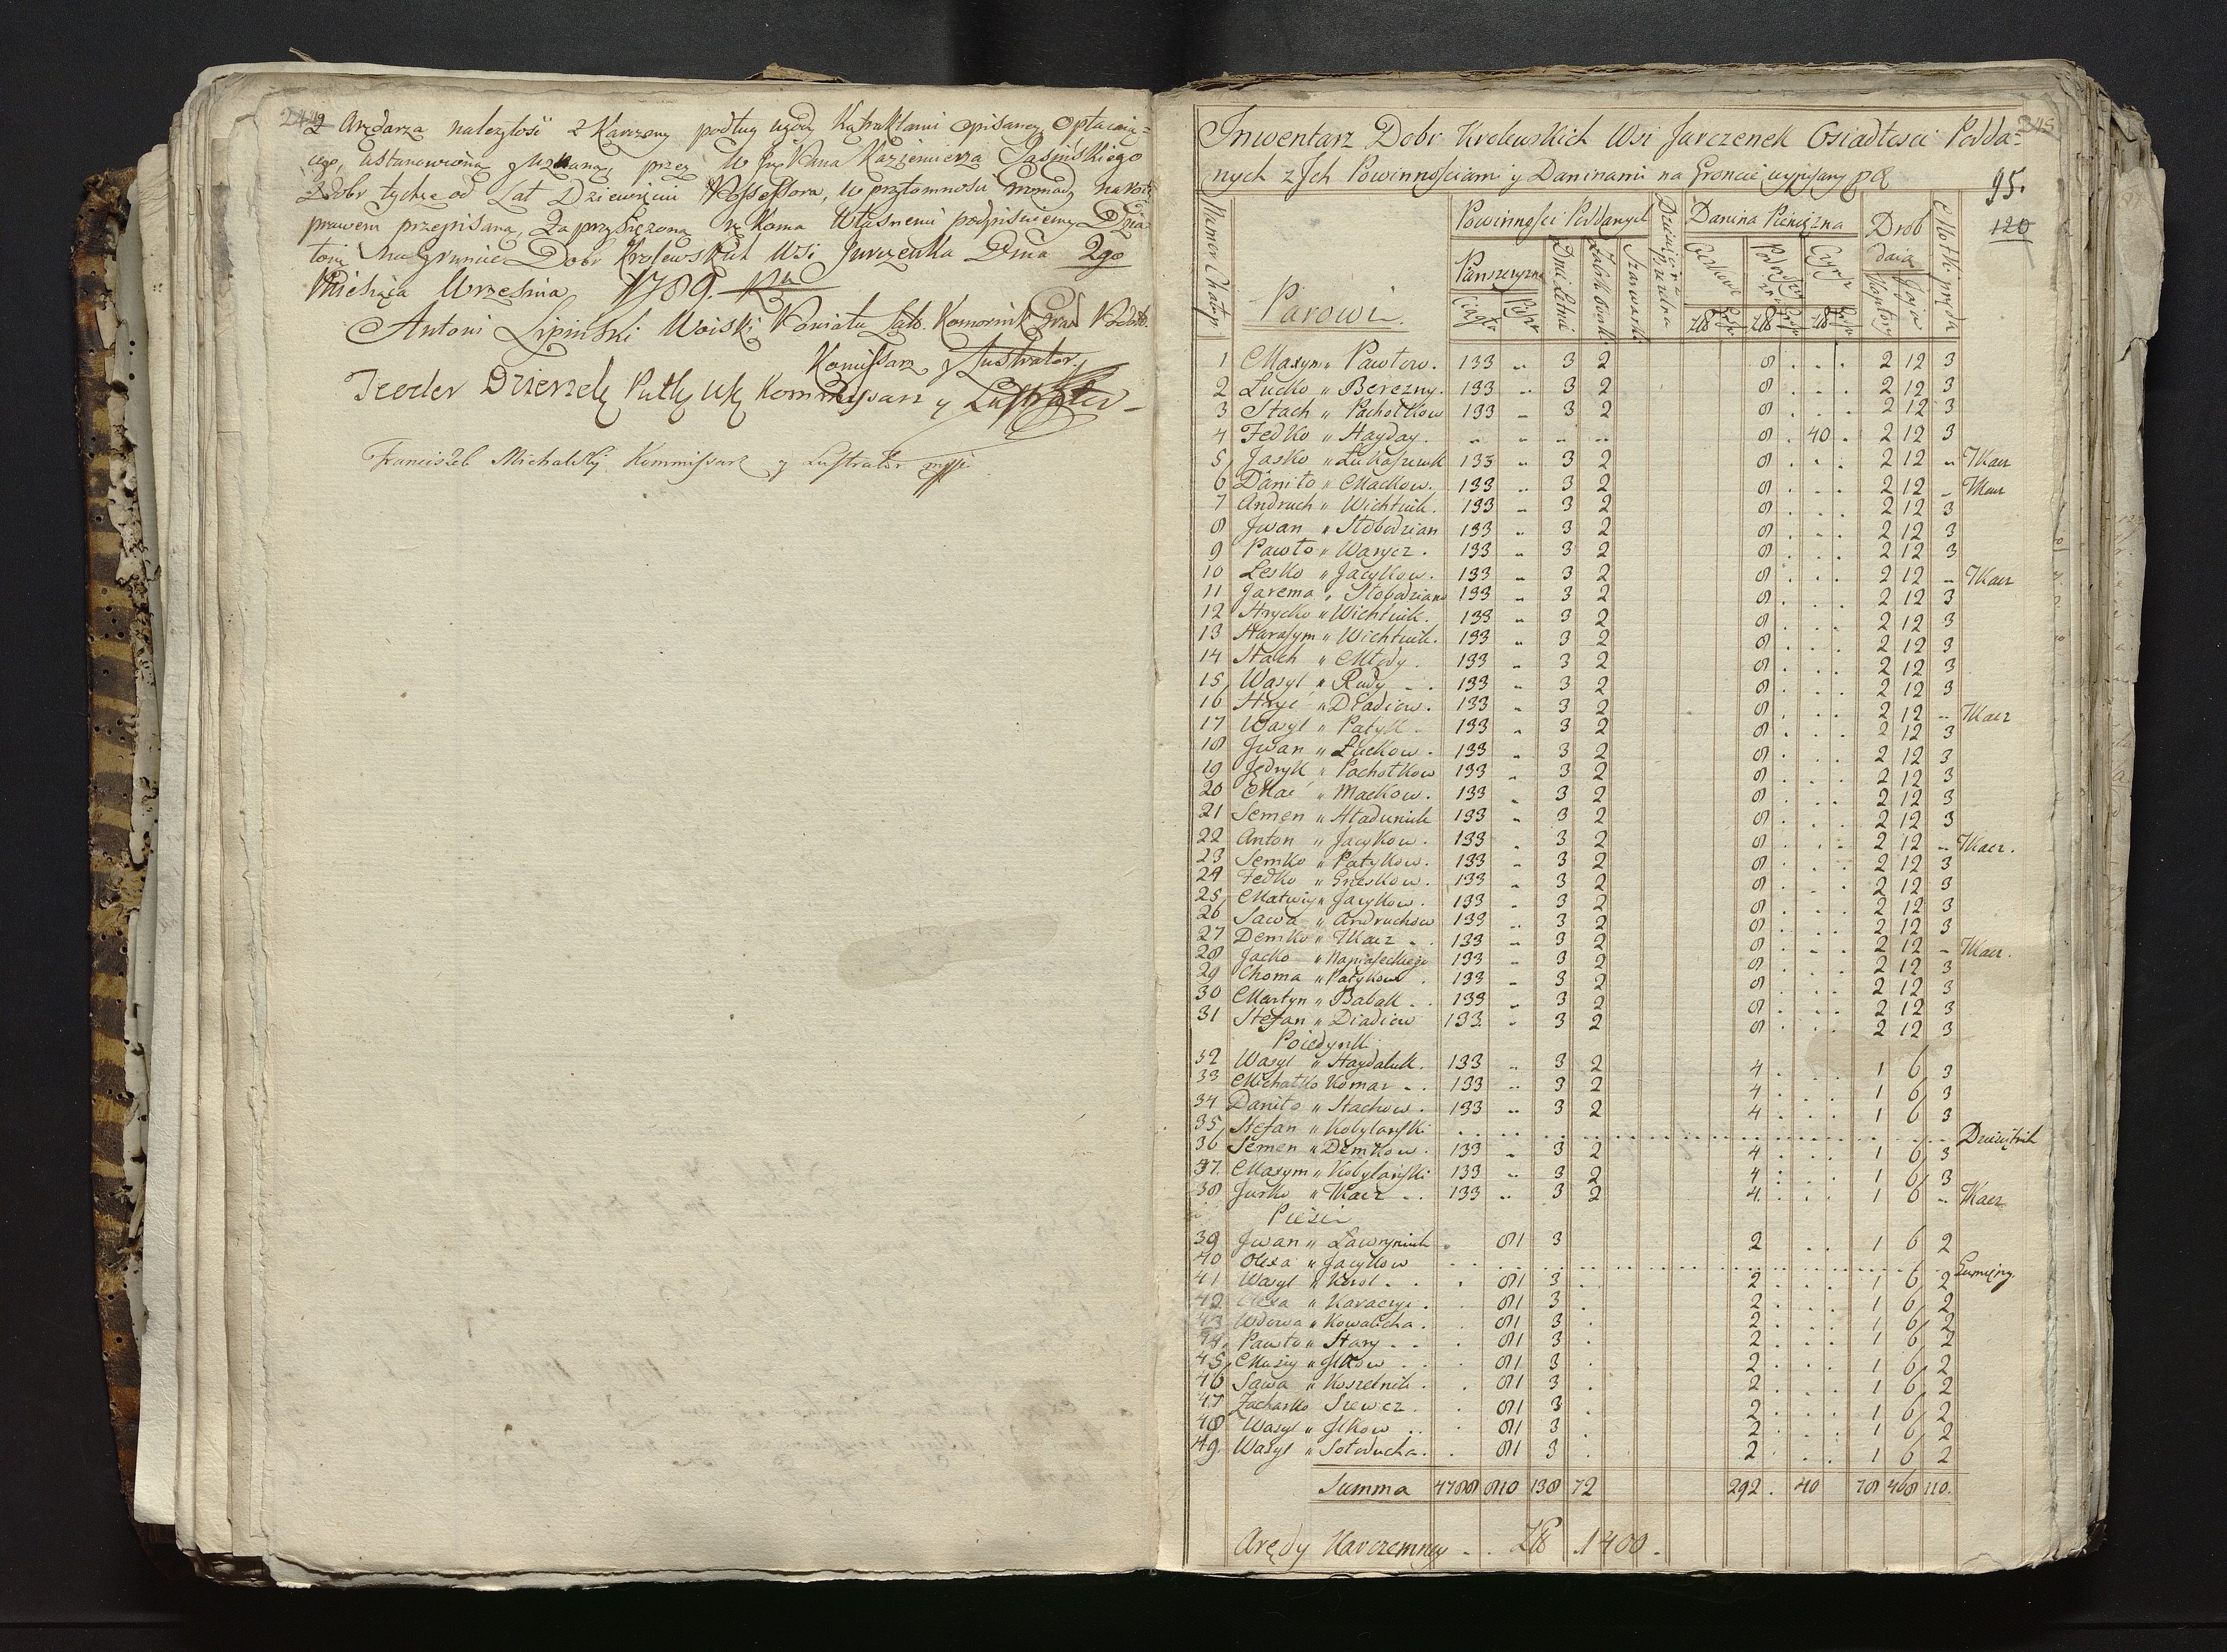 244
z Arędarza należytość z Karczmy podług ugody Kątraktami opisaney Opłacaią=
cego, ustanowioną y uznaną przez W Jmc Pana Kazimierza Jasińskiego
z Dobr tychże od Lat Dziewięciu Possessora, w przytomności Gromady
prawem przepisaną, Zaprzysiężoną rękoma własnemi podpisuiemy Dzia
ło się na Gruncie Dobr Krolewskich Wsi Jurczenka Dnia 2go
Miesiąca Września 1789. Rku
Antoni Lipinski Woiski Powiatu Komornik Grad
Komissarz y Lustrator
Teodor Dzierzek Putk Kommissarz y Lustrator
Franciszek Michalski Kommissarz y Lustrator mpp
245
Inwentarz Dobr Krolewskich Wsi Jurczenek Osiadłosci Podda=
nych z Jch Powinnościami y Daninami na Groncie wypisany
95.
120
Numer Chałup
Powinnosci Poddanych
Danina Pieniężna
Drob
Motki przędą
Panszczyzna
Dni Letnie
Zakosy
Szarwarki
Dziesięcina Pszczelna
Czynsz
daią
Ciągła
Piesz
Kapłony
Jaja
Parowi.
1 Maxym " Pawłow. 133 " 3 2 8 . . . 2 12 3
2 Lucko " Berezny. 133 " 3 2 8 . . . 2 12 3
3 Stach " Pachołkow 133 " 3 2 8 . . . 2 12 3
4 Fedko " Hayday. " " " " 8 . 40 . 2 12 3
5 Jasko " Łukaszewk 133 " 3 2 8 . . . 2 12 " Tkacz
6 Daniło " Maćkow. 133 " 3 2 8 . . . 2 12 " Tkacz
7 Andruch " Wichtiuk. 133 " 3 2 8 . . . 2 12 3
8 Jwan " Słobodzian 133 " 3 2 8 . . . 2 12 3
9 Pawło " Warycz. 133 " 3 2 8 . . . 2 12 3
10 Lesko " Jacykow. 133 " 3 2 8 . . . 2 12 " Tkacz
11 Jarema " Słobodzian 133 " 3 2 8 . . . 2 12 3
12 Hrycko " Wichtiuk. 133 " 3 2 8 . . . 2 12 3
13 Harasym " Wichtiuk. 133 " 3 2 8 . . . 2 12 3
14 Stach " Młody. 133 " 3 2 8 . . . 2 12 3
15 Wasyl " Rudy 133 " 3 2 8 . . . 2 12 3
16 Hryć " Dŕadiow. 133 " 3 2 8 . . . 2 12 " Tkacz
17 Wasyl " Patyk. 133 " 3 2 8 . . . 2 12 3
18 Jwan " Łuckow. 133 " 3 2 8 . . . 2 12 3
19 Jędryk " Pachołkow 133 " 3 2 8 . . . 2 12 3
20 Mać " Maćkow. 133 " 3 2 8 . . . 2 12 3
21 Semen " Hładuniuk 133 " 3 2 8 . . . 2 12 3
22 Anton " Jacykow. 133 " 3 2 8 . . . 2 12 " Tkacz.
23 Semko " Patykow. 133 " 3 2 8 . . . 2 12 3
24 Fedko " Greskow. 133 " 3 2 8 . . . 2 12 3
25 Matwiy " Jacykow. 133 " 3 2 8 . . . 2 12 3
26 Sawa " Andruchow 133 " 3 2 8 . . . 2 12 3
27 Demko " Tkacz 133 " 3 2 8 . . . 2 12 " Tkacz.
28 Jacko " 133 " 3 2 8 . . . 2 12 3
29 Choma " Patykow 133 " 3 2 8 . . . 2 12 3
30 Martyn " Babak 133 " 3 2 8 . . . 2 12 3
31 Stefan " Diadiow 133 " 3 2 8 . . . 2 12 3
Poiedynki
32 Wasyl " Haydaluk. 133 " 3 2 4 . . . 1 6 3
33 Michałko Komar 133 " 3 2 4 . . . 1 6 3
34 Daniło " Stachow. 133 " 3 2 4 . . . 1 6 3
35 Stefan " Kobylański Dziesiętnik
36 Semen " Demkow. 133 " 3 2 4 . . . 1 6 3
37. Maxym " Kobylański 133 " 3 2 4 . . . 1 6 3
38 Jurko " Tkacz 133 " 3 2 4 . . . 1 6 " Tkacz
Piesi
39 Jwan " Ławryniuk . 81 3 2 . . 1 6 2
40 Olexa " Jacykow Gumięny.
41 Wasyl " Korol . 81 3 . 2 . . . 1 6 2
42 Olexa " Karaczyi. . 81 3 . 2 . . . 1 6 2
43 Wdowa " Kowalicha. . 81 3 . 2 . . . 1 6 2
44. Pawło " Stary . 81 3 . 2 . . . 1 6 2
45 Musiy " Jlkow . 81 3 . 2 . . . 1 6 2
46 Sawa " Koszelnik. . 81 3 . 2 . . . 1 6 2
47 Zacharko Szewcz. . 81 3 . 2 . . . 1 6 2
48 Wasyl " Jlkow . 81 3 . 2 . . . 1 6 2
49. Wasyl " Sołowucha. . 81 3 . 2 . . . 1 6 2
Summa 4788 810 138 72 292. 40 78 468 110.
Arędy Karczemney . . Zł .1400.